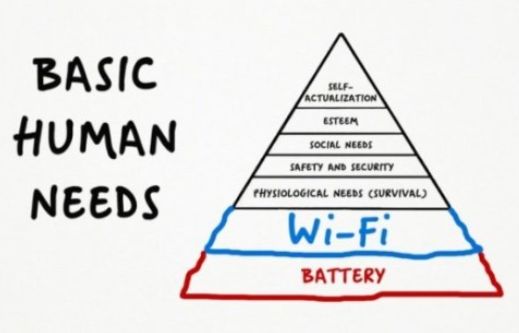 BASIC
HUMAN
NEEDS
SELF-
ACTUALIZATION
ESTEEM
SOCIAL NEEDS
SAFETY AND SECURITY
PHYSIOLOGICAL NEEDS (SURVIVAL)
Wi-Fi
BATTERY